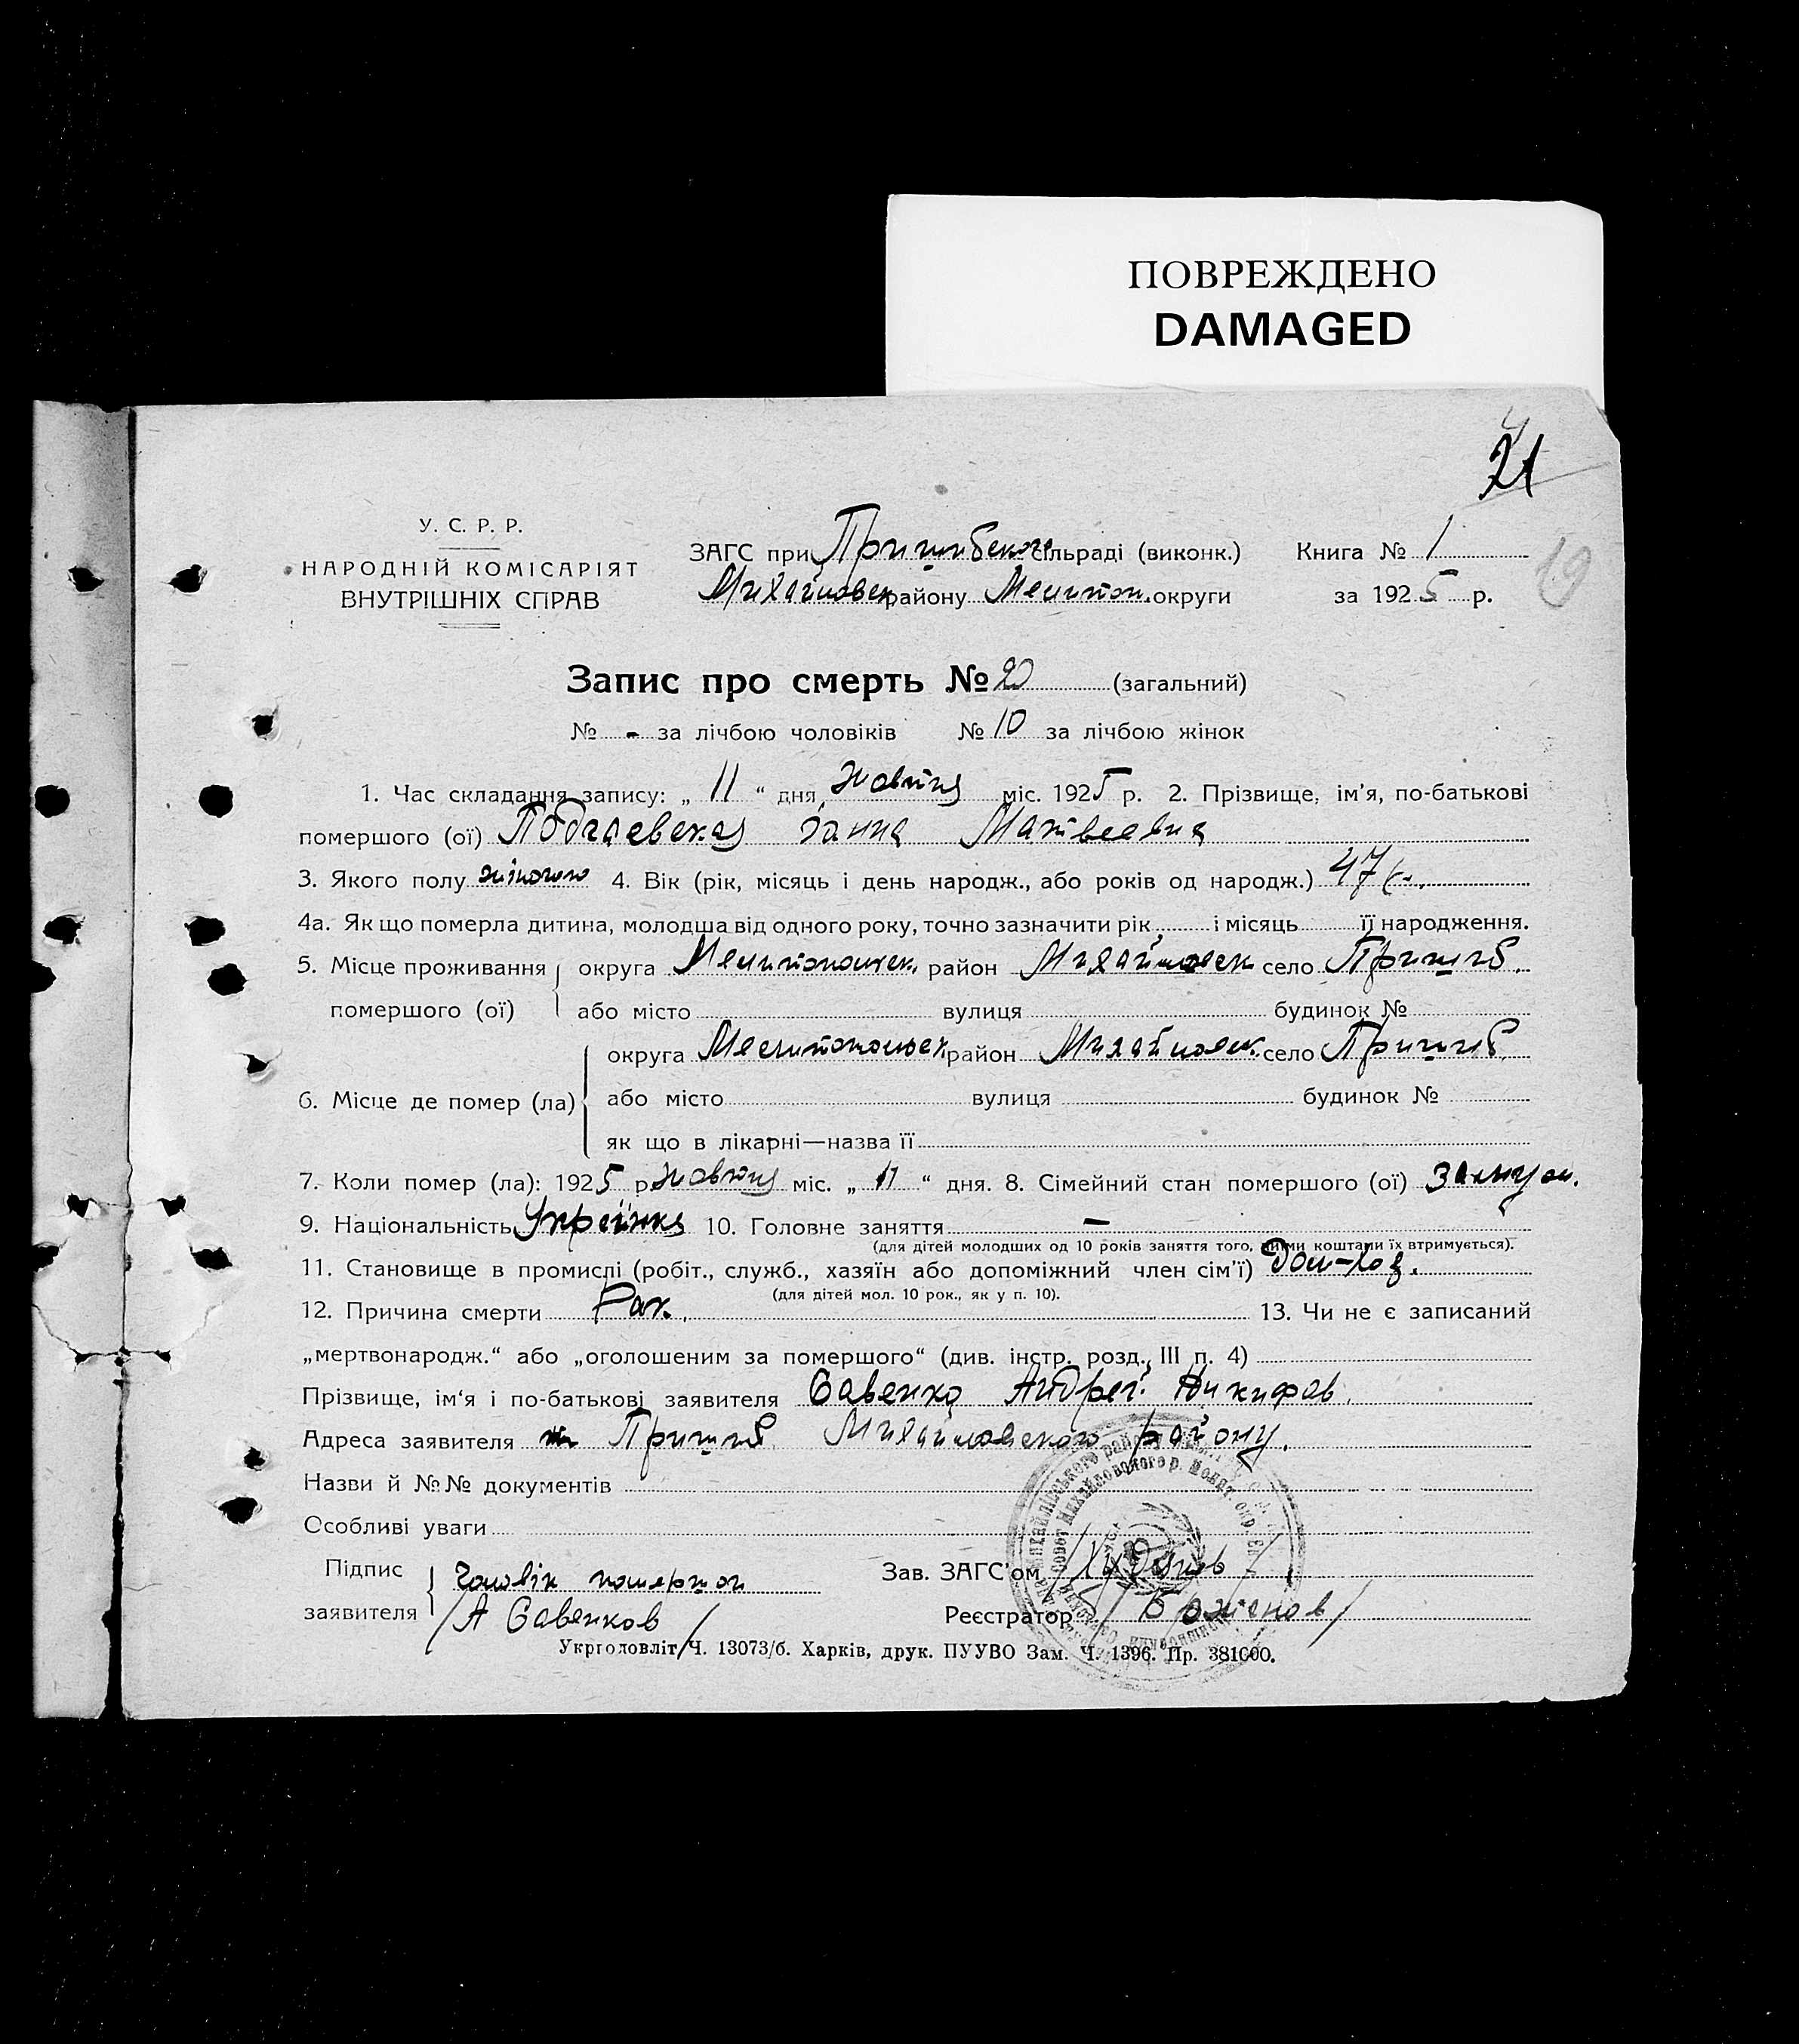 ПОВРЕЖДЕНО
DAMAGED
21
19
У. С. Р. Р.
НАРОДНІЙ КОМІСАРІЯТ
ВНУТРІШНІХ СПРАВ
ЗАГС при Пришибского сільраді (виконк.) Книга № 1
Михайловск району Мелитоп. округи за 1925 р.
Запис про смерть № 20 (загальний)
№ - за лічбою чоловіків № 10 за лічбою жінок
1. Час складання запису: „ 11 “ дня Жовтня міс. 1925 р. 2. Прізвище, ім’я, по-батькові
помершого (ої) Подгаевская Ганна Матвеевна
3. Якого полу жіночого 4. Вік (рік, місяць і день народж., або років од народж.) 47
4а. Як що померла дитина, молодша від одного року, точно зазначити рік і місяць її народження.
5. Місце проживання округа Мелитопольск. район Михайловск село Пришиб.
помершого (ої) або місто вулиця будинок №
округа Мелитопольск. район Михайловск. село Пришиб.
6. Місце де помер (ла) або місто вулиця будинок №
як що в лікарні—назва її
7. Коли помер (ла): 1925 р. Жовтня міс. „ 11 “ дня. 8. Сімейний стан помершого (ої) Замуж.
9. Національність Украінка 10. Головне заняття —
(для дітей молодших од 10 років заняття того, чиїми коштами їх втримується).
11. Становище в промислі (робіт., служб., хазяїн або допоміжний член сім’ї) Дом-хоз.
(для дітей мол. 10 рок., як у п. 10).
12. Причина смерти Рак. 13. Чи не є записаний
„мертвонародж.“ або „оголошеним за помершого“ (див. інстр. розд., III п. 4)
Прізвище, ім‘я і по-батькові заявителя Савенко Андрей Никифов.
Адреса заявителя Пришиб Михайловского району.
Назви й №№ документів
Особливі уваги
Підпис Чоловік помершой Зав. ЗАГС’ом
заявителя /А Савенков/ Реєстратор /Баженов/
Укрголовліт Ч. 13073/б. Харків, друк. ПУУВО Зам. Ч. 1396. Пр. 381000.